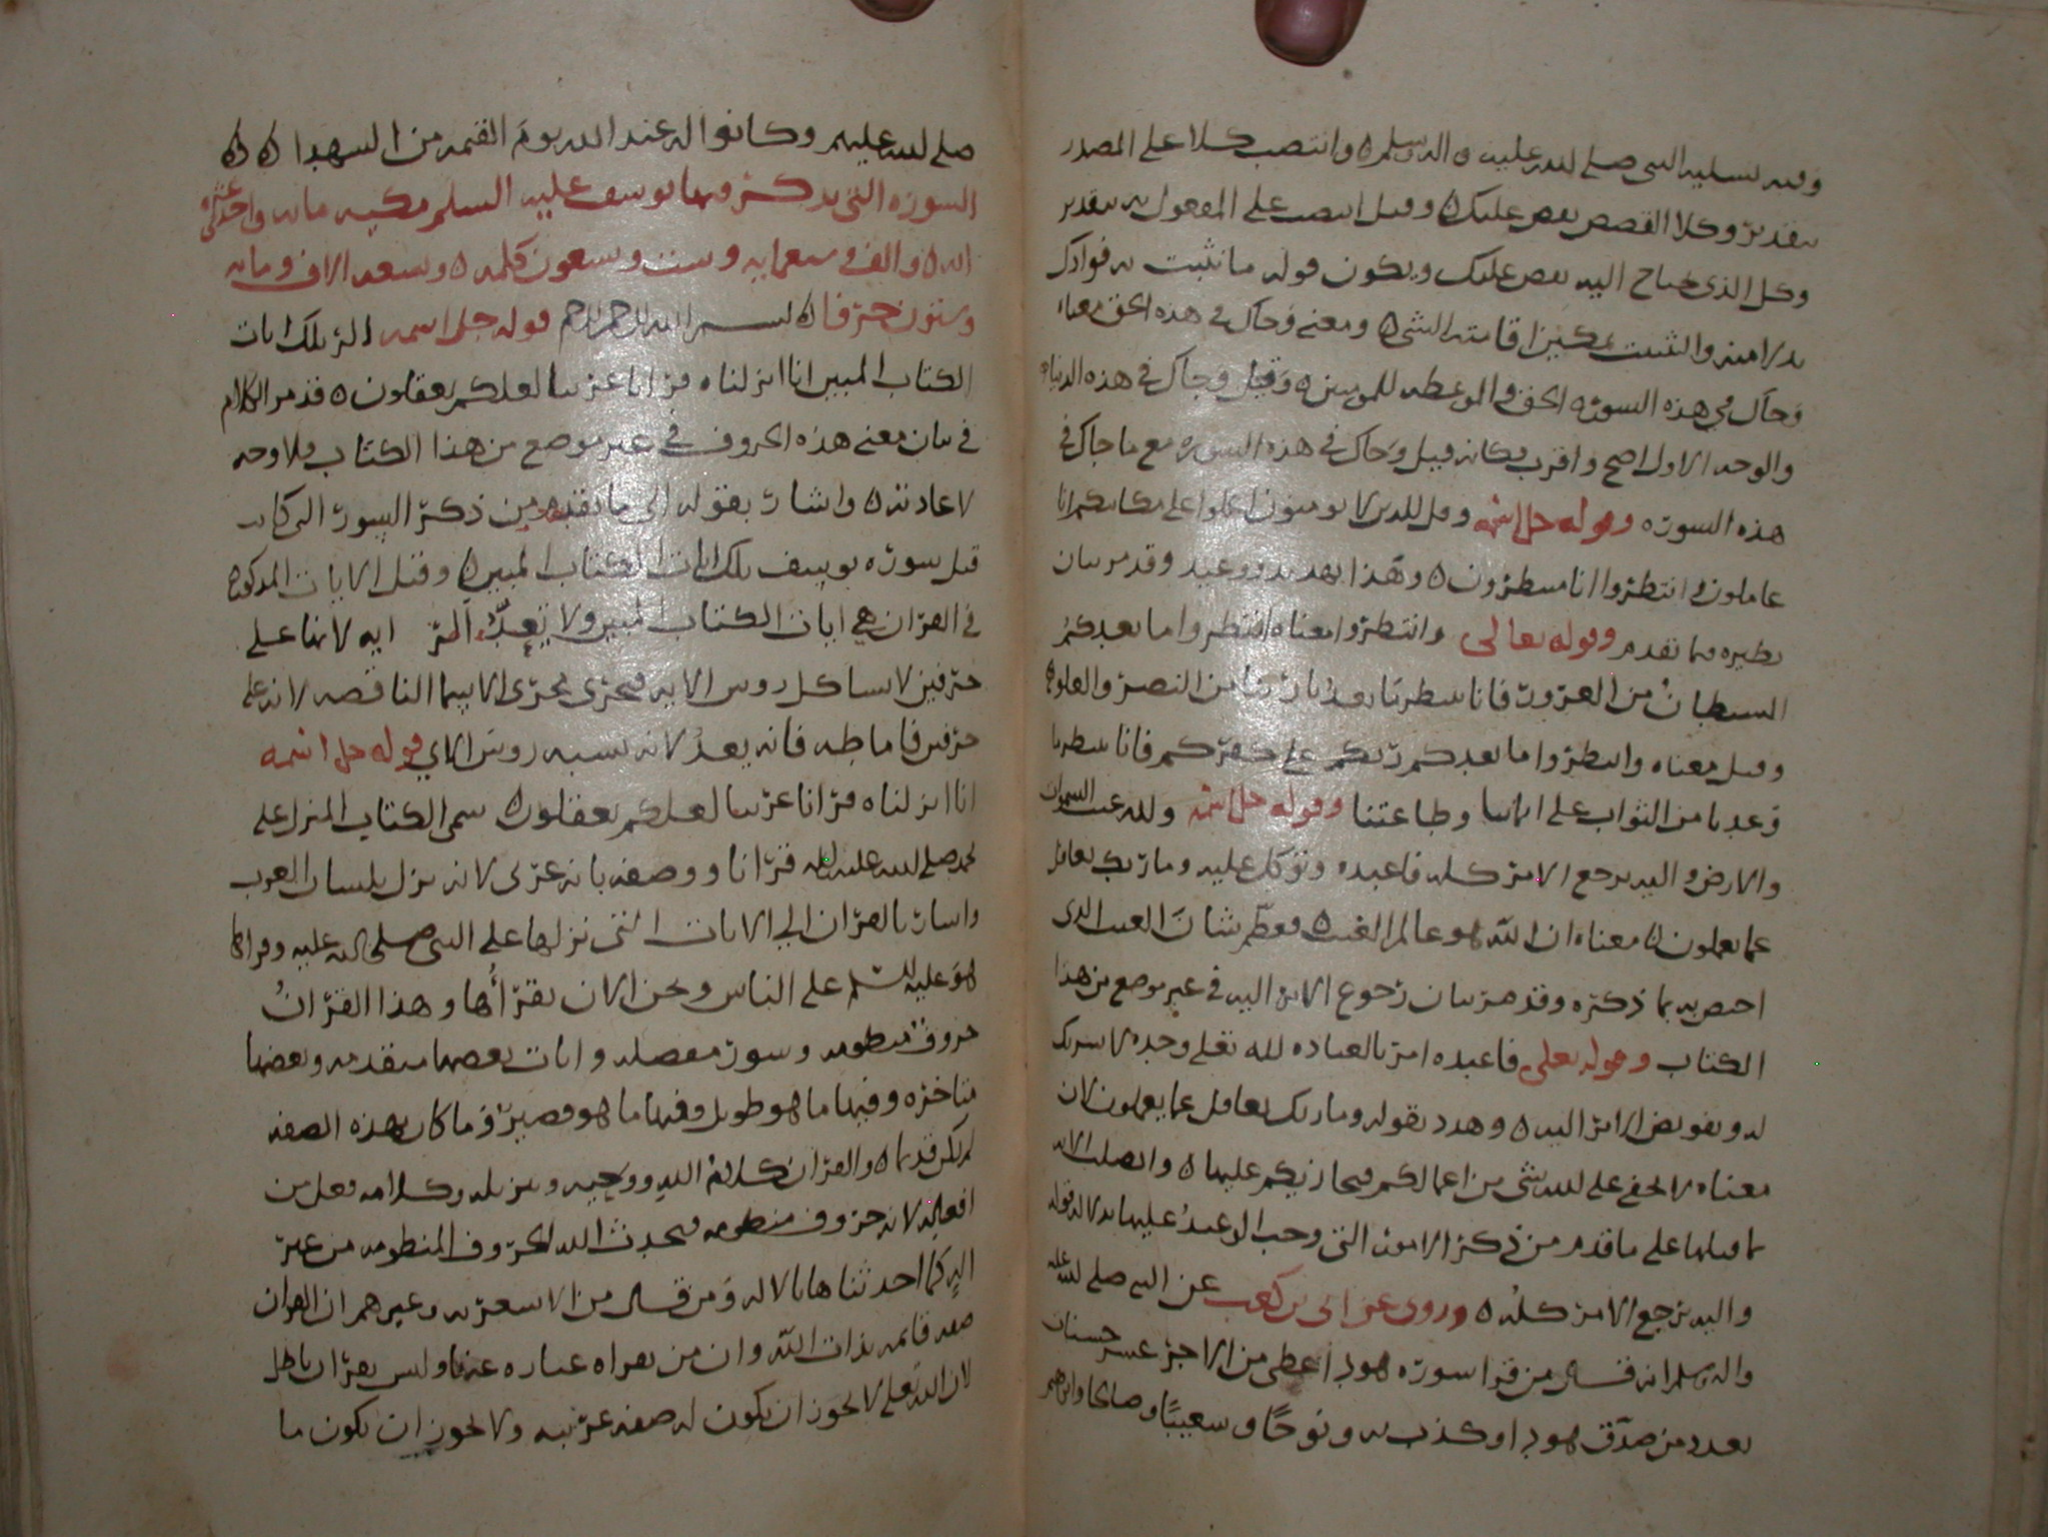 وفيه تسلية النبي صلى الله عليه واله وسلم ه وانتصب كلا على المصدر
بتقدير وكلا القصص نقص عليك ه وقيل انتصب على المفعول به بتقدير
وكل الذي تحتاج اليه نقص عليك ويكون قوله ما نثبت به فوادك
بدلا منه والتثبيت تمكين اقامته الشي ه ومعنى وجاك في هذه الحق معناه
وجاك في هذه السورة الحق والموعظه للمومنين ه وقيل وجاك في هذه الدنيا ه
والوجه الاول اصح واقرب فكانه قيل وجاك في هذه السوره مع ما جاك في
هذه السورة وقوله جل اسمه وقل للذين لا يومنون اعملوا على مكانتكم انا
عاملون ه وانتظروا انا منتظرون ه وهذا تهديد ووعيد وقد مر بيان
نظيره فيما تقدم وقوله تعالى وانتظروا معناه انتظروا ما يعدكم
الشيطان من الغرور فانا منتظرون ما يعدنا ربنا من النصر والعلو ه
وقيل معناه وانتظروا ما يعدكم ربكم على كفركم فانا منتظرون ما
وعدنا من الثواب على ايماننا وطاعتنا وقوله جل اسمه ولله غيب السموات
والارض واليه يرجع الامر كله فاعبده وتوكل عليه وما ربك بغافل
عما يعملون ه معناه ان الله هو عالم الغيب ه فعظم شان الغيب الذي
اختص به بما ذكره وقد مر بيان رجوع الامر اليه في غير موضع من هذا
الكتاب وقوله تعلى فاعبده امر بالعباده لله تعلى وحده لا شريك
له وتفويض الامر اليه ه وهدد بقوله وما ربك بغافل عما يعملون لان
معناه لا يخفى على الله شي من اعمالكم فيجازيكم عليها ه واتصلت الايه
بما قبلها على ما قدم من ذكر الامور التي وجب الوعيد عليها بدلاله قوله
واليه يرجع الامر كله ه وروى عن ابي بن كعب عن النبي صلى الله عليه
واله وسلم انه قال من قرا سورة هود اعطي من الاجر عشر حسنات
بعدد من صدق هود او كذب به ونوحًا وشعيبًا وصالحا وابراهيم
صلى الله عليهم وكانوا له عند الله يوم القيمه من الشهدا ه ه ه
السوره التي يذكر فيها يوسف عليه السلم مكيه مايه واحد عشر
ايه ه والف وسبعمايه وست وسبعون كلمه ه وسبعه الاف ومايه
وستون حرفا ه بسم الله الرحمن الرحيم قوله جل اسمه الر تلك ايات
الكتاب المبين انا انزلناه قرانا عربيا لعلكم تعقلون ه قد مر الكلام
في بيان معنى هذه الحروف في غير موضع من هذا الكتاب فلا وجه
لاعادته ه واشار بقوله الى ما تقدم من ذكر السور التي كانت
قبل سوره يوسف تلك ايات الكتاب المبين ه وقيل الايات المذكوره
في القران هي ايات الكتاب المبين ولا يعدّ الر ايه لانها على
حرفين لا يشاكل روس الايه فيجرى مجرى الاسما الناقصه لانه على
حرفين فاما طه فانه يعد لانه يشبه روس الاي قوله جل اسمه
انا انزلناه قرانا عربيا لعلكم تعقلون ه سمى الكتاب المنزل على
محمد صلى الله عليه واله قرانا ووصفه بانه عربي لانه نزل بلسان العرب
واشار بالقران الى الايات التي نزلها على النبي صلى الله عليه وقراها
هو عليه السلم على الناس ونحن الان نقرأها وهذا القران
حروف منظومه وسور مفصله وايات بعضها متقدمه وبعضها
متاخره وفيها ما هو طويل وفيها ما هو قصير وما كان بهذه الصفه
لم يكن قديما ه والقران كلام الله ووحيه وتنزيله وكلامه فعل من
افعاله لانه حروف منظومه فيحدث الله الحروف المنظومه من غير
اله كما احدثناها بالاله ومن قال من الاشعريه وغيرهم ان القران
صفه قائمه بذات الله وان من يقراه عباره عنها وليس بقران باطل
لان الله تعلى لا يجوز ان يكون له صفه عربيه ولا يجوز ان يكون ما